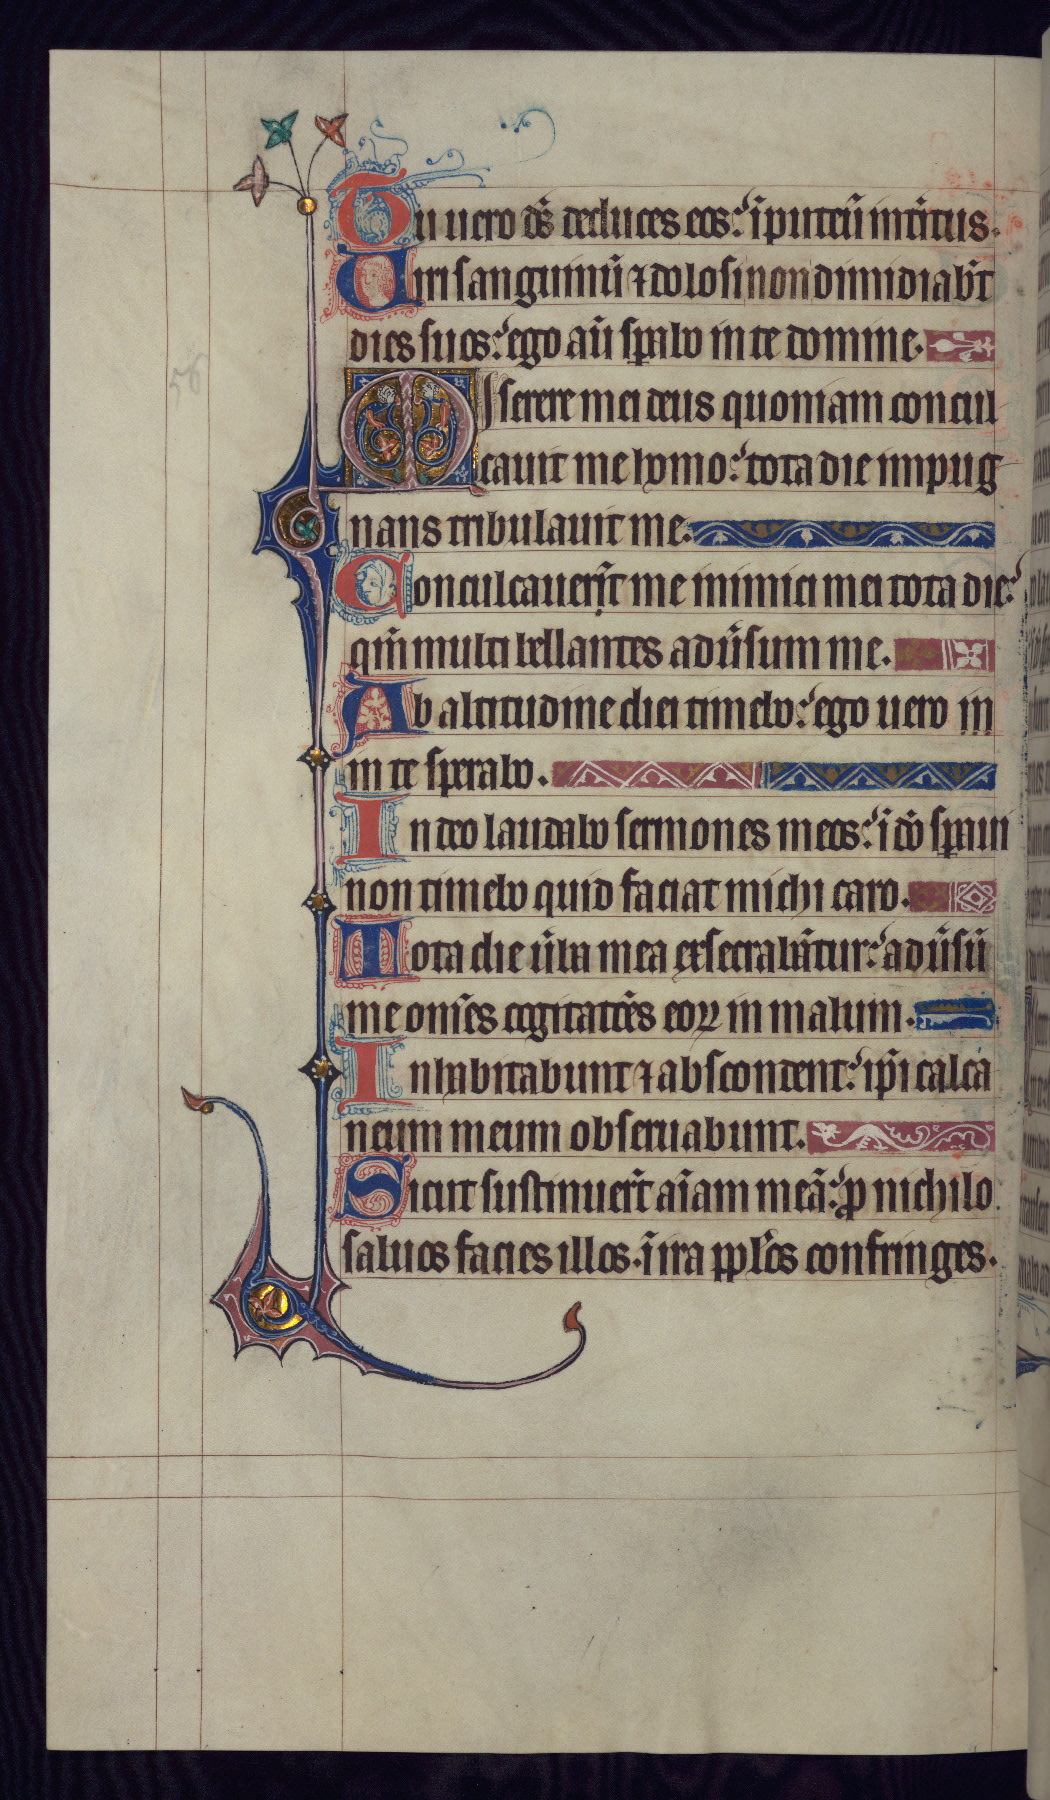 Tu uero dẽ deduces eos: ĩ puteũ int̃itus.
Uiri sanguinũ ⁊ dolosi non dimidiab̃t
dies suos: ego aũ sꝑabo in te domine.
Miserere mei deus quoniam concul
cauit me homo: tota die inpug
nans tribulauit me.
Conculcauer̃t me inimici mei tota die:
qm̃ multi bellantes adũsum me.
Ab altitudine diei timebo: ego uero in
in te sperabo.
In deo laudabo sermones meos: ĩ dõ sꝑaui
non timebo quid faciat michi caro.
Tota die ũba mea exsecrabãtur: adũsũ
me om̃es cogitatões eoꝝ in malum.
Inhabitabunt ⁊ abscondent: ip̃i calca
neum meum obseruabunt.
Sicut sustinuer̃t aĩam meã: ꝓ nichilo
saluos facies illos. ĩ ira ppl̃os confringes.
56